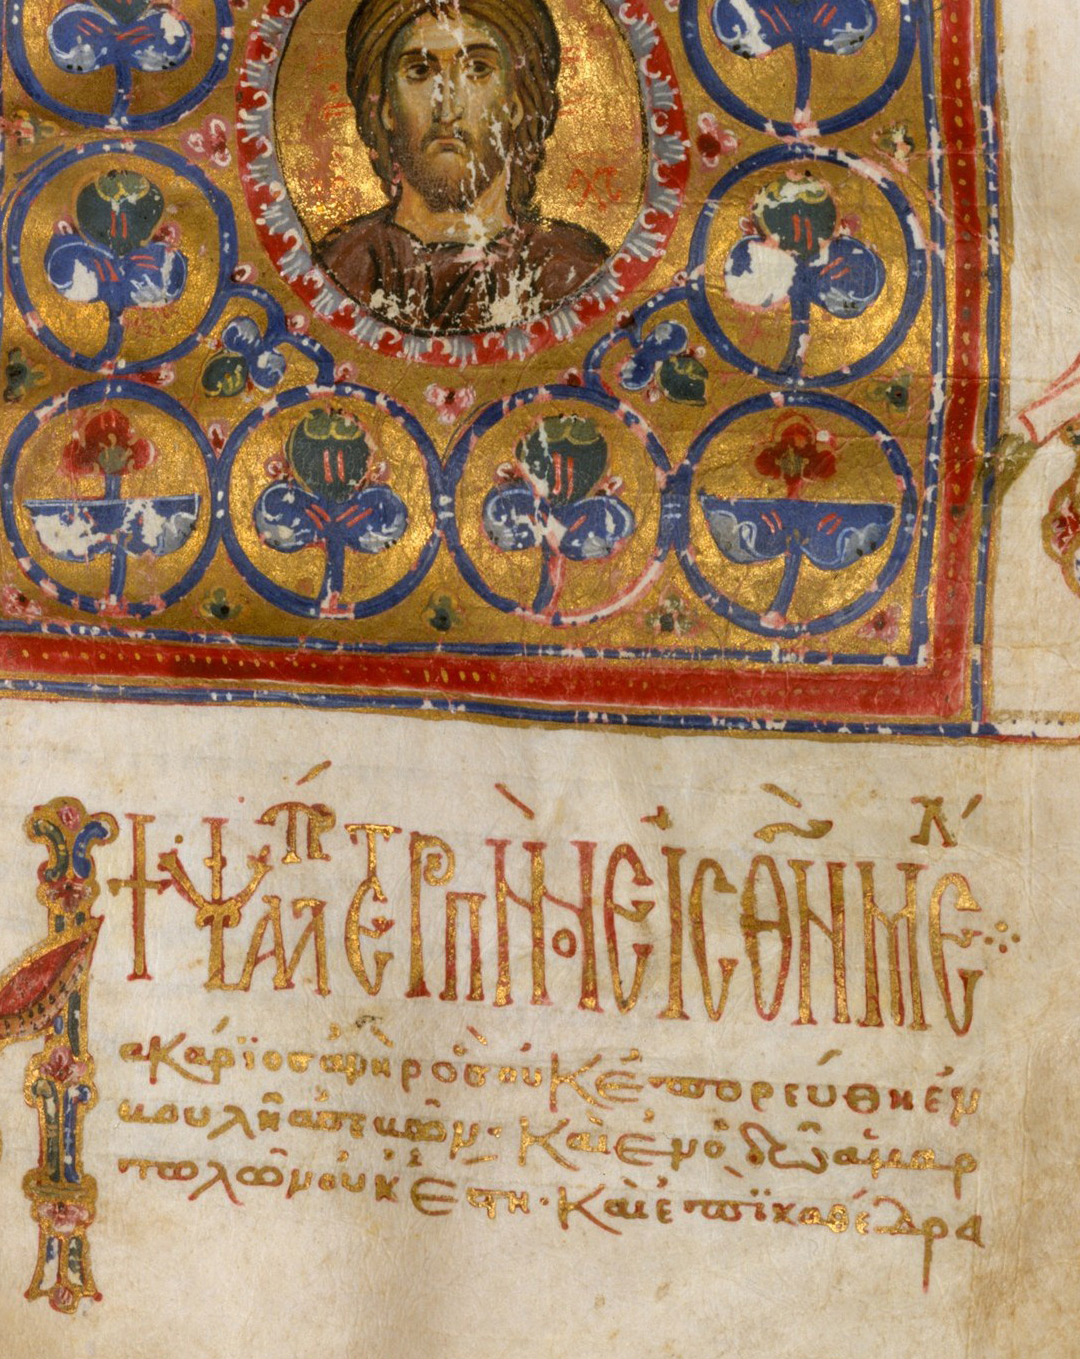 ΧC
ΤΕΡΠΝὸΝ ΕἸC Θ̃Ν ΜΕΛ
Μακάριος ἀνὴρ ὃς οὐκ ἐπορεύθη ἐν
βουλῆ ἀσεβῶν· καὶ ἐν ὁδῶ ἁμαρ
τωλῶν οὐκ ἔστη· καὶ ἐπὶ καθέδρα